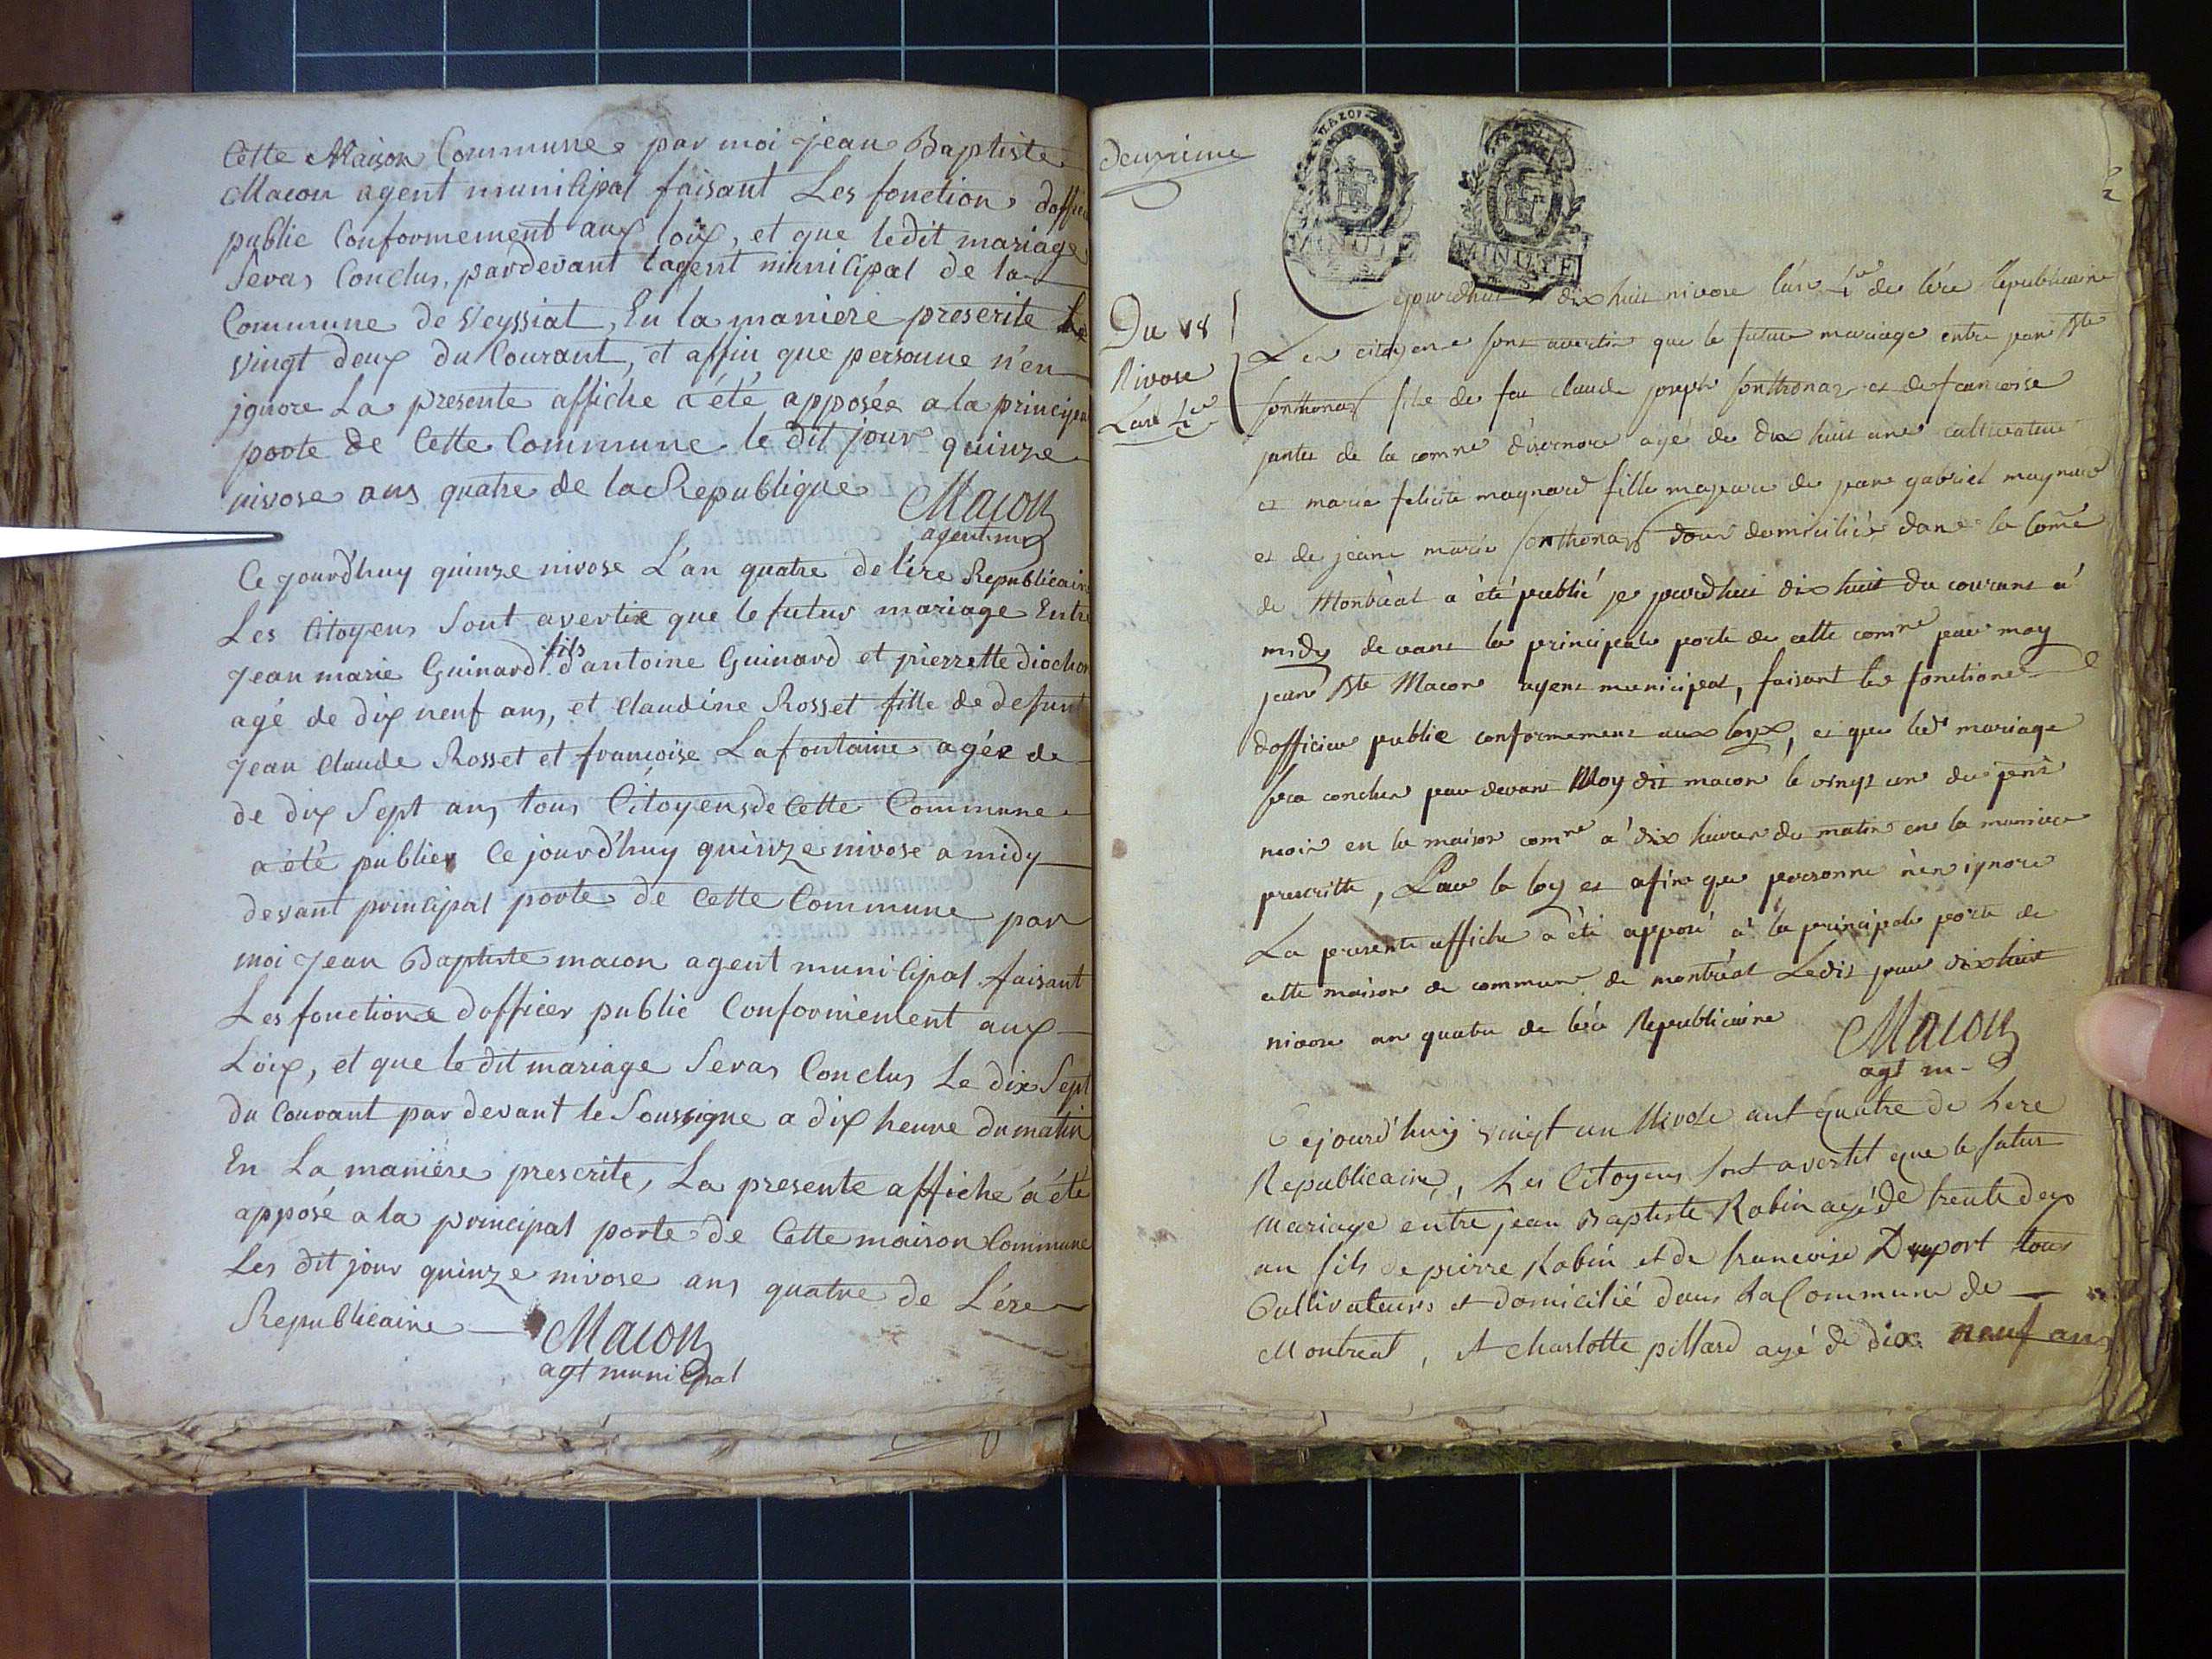 Cette Maison Commune par moi jean Baptiste
Macon agent municipal faisant Les fonction doffici
public Conformement aux loix, et que ledit mariage
Seras Conclus, pardevant lagent municipal de la
Commune de Veyssiat, En la maniere prescrite le
vingt deux du Courant, et affin que personne n'en
jgnore La presente affiche a été apposée a la principal
porte de Cette Commune le dit jour quinze
nivose ans quatre de la Republique
Macon
agent m
Ce jourd'huy quinze nivose L'an quatre de l'ére Republicaine
Les Citoyens Sont avertie que le futur mariage Entre
fils
Jean marie Guinard d'antoine Guinard et pierrette diochon
agé de dix neuf ans, et Claudine Rosset fille de defunt
Jean Claude Rosset et françoise Lafontaine agée de
de dix Sept ans tous Citoyens de Cette Commune
a été publier Ce jourd'huy quinze nivose a midy
devant principal porte de Cette Commune par
moi Jean Baptiste macon agent municipal faisant
Les fonctione dofficier public Conformément aux
Loix, et que le dit mariage Seras Conclus Le dix Sept
du Courant par devant le Soussigne a dix heure du matin
En La maniere prescrite, La presente affiche a été
apposé a la principal porte de Cette maison Commune
Les dit jour quinze nivose ans quatre de L'ére
Republicaine
Macon
agt municipal
deuxieme
MINUTE
MINUTE
2
Du 18
Nivose
Lan 4e
Cejourdhui dix huit nivose l'an 4e de l'ére Republicaine
Les citoyens sont avertis que le future mariage entre jean Bte
sonthonax fils de feu claude joseph sonthonax et de francoise
jantet de la comne d'isernore agé de dix huit ans cultivateur
et marie felicité maynard fille majeure de jean gabriel maynard
et de jeane marie sonthonax tous domiciliés dans la Come
de Montréal a été publié je jourdhui dix huit du courant a
midy devant la principale porte de cette comne par moy
jean Bte Macon agent municipal, faisant les fonctions
dofficier public conformement aux loyx, et que led mariage
sera conclus par devant Moy dit macon le vingt un du pent
mois en la maison comne a dix heures du matin en la maniere
prescritte, Par la loy et afin que personne n'en ignore
La presente affiche a été apposé a la principale porte de
cette maison de commune de montréal Ledit jour dix huit
nivose an quatre de l'ére Republicaine
Macon
agt m
Cejourd'huy vingt un Nivose ant quatre de here
Republicaine, Les Citoyens Sont avertit que le futur
Mariage entre jean Baptiste Robin agé de trente deux
an fils de pierre Robin et de francoise Duport tous
Cultivateurs et domicilié dans La Commune de
Montreal, et Charlotte pillard agé de dix neuf ans